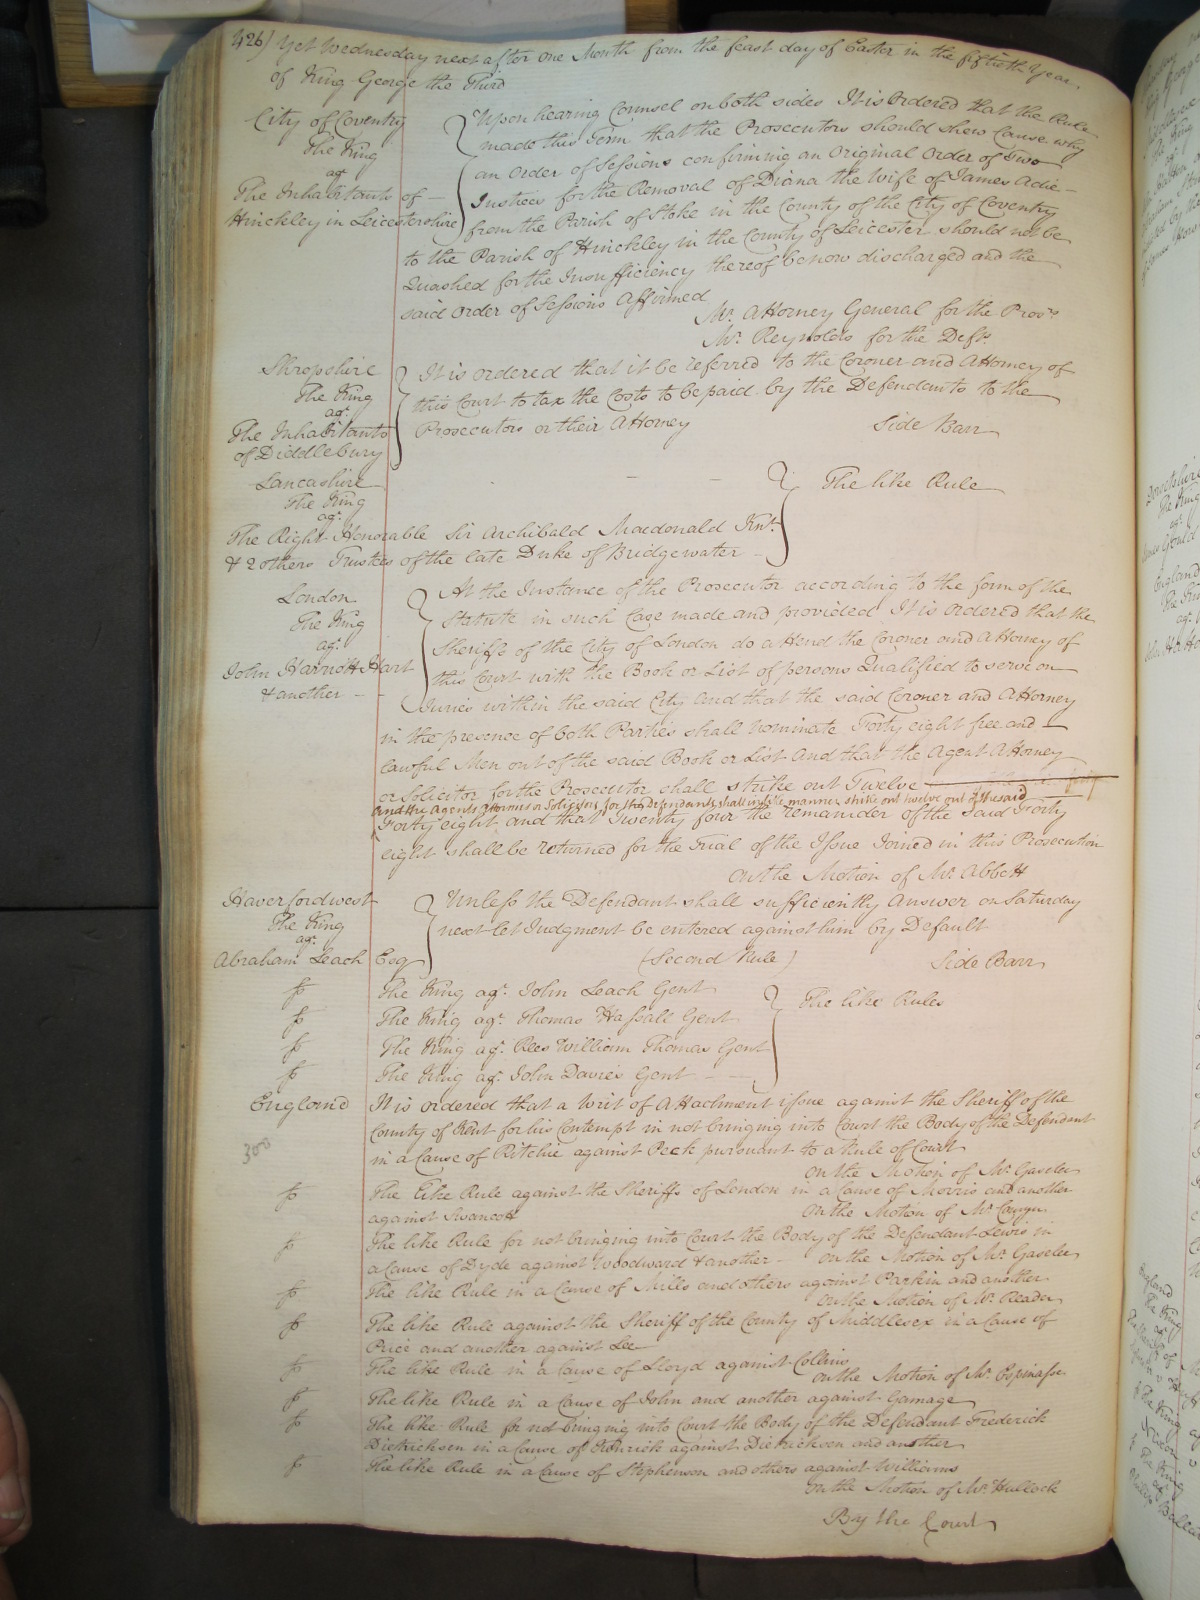 426) Yet Wednesday next after one Month from the feast day of Easter in the fiftieth Year
of King George the Third
City of Coventry
The King
agt
The Inhabitants of
Hinckley in Leicestershire
Upon hearing Counsel on both sides It is Ordered that the Rule
made this Term that the Prosecutors should shew Cause why
an Order of Sessions confirming an Original Order of Two
Justices for the Removal of Diana the Wife of James Adie
from the Parish of Stoke in the County of the City of Coventry
to the Parish of Hinckley in the County of Leicester should not be
Quashed for the Insufficiency thereof be now discharged and the
said Order of Sessions Affirmed
Mr. Attorney General for the Prosrs
Mr. Reynolds for the Defts
Shropshire
The King
agt.
The Inhabitants
of Diddlebury
It is ordered that it be referred to the Coroner and Attorney of
this Court to tax the Costs to be paid by the Defendants to the
Prosecutors or their Attorney Side Barr
Lancashire
The King
agt.
The Right Honorable Sir Archibald Macdonald Knt.
& 2 others Trustees of the late Duke of Bridgewater
The like Rule
London
The King
agt.
John Harriott Hart
& another
At the Instance of the Prosecutor according to the form of the
Statute in such Case made and provided It is Ordered that the
Sheriffs of the City of London do attend the Coroner and Attorney of
this Court with the Book or List of persons Qualified to serve on
Juries within the said City And that the said Coroner and Attorney
in the presence of both Parties shall nominate Forty eight free and
lawful Men out of the said Book or List And that the Agent Attorney
or Solicitor for the Prosecutor shall strike out Twelve
and the Agents Attornies or Solicitors for the Defendants shall in like manner strike out twelve out of the said
Forty eight and that Twenty four the remainder of the said Forty
eight shall be returned for the Trial of the Issue Joined in this Prosecution
On the Motion of Mr. Abbott
Haverfordwest
The King
agt.
Abraham Leach Esq
Unless the Defendant shall sufficiently Answer on Saturday
next let Judgment be entered against him by Default
(Second Rule) Side Barr
The King agt. John Leach Gent
The King agt. Thomas Hassall Gent
The King agt. Rees William Thomas Gent
The King agt. John Davies Gent
The like Rules
England
It is ordered that a Writ of Attachment issue against the Sheriff of the
County of Kent for his Contempt in not bringing into Court the Body of the Defendant
in a Cause of Ritchie against Peck pursuant to a Rule of Court
300
On the Motion of Mr. Gaselee
The Like Rule against the Sheriffs of London in a Cause of Morris and another
against Swancott On the Motion of Mr.
The like Rule for not bringing into Court the Body of the Defendant Lewis in
a Cause of Dyde against Woodward & another On the Motion of Mr. Gaselee
The like Rule in a Cause of Mills and others against Parkin and another
On the Motion of Mr. Reader
The like Rule against the Sheriff of the County of Middlesex in a Cause of
Price and another against Lee
The like Rule in a Cause of Lloyd against Collins
On the Motion of Mr. Espinasse
The like Rule in a Cause of John and another against Gamage
The like Rule for not bringing into Court the Body of the Defendant Frederick
Dietrichsen in a Cause of against Dietrichsen and another
The like Rule in a Cause of Stephenson and others against Williams
On the Motion of Mr. Hullock
By the Court